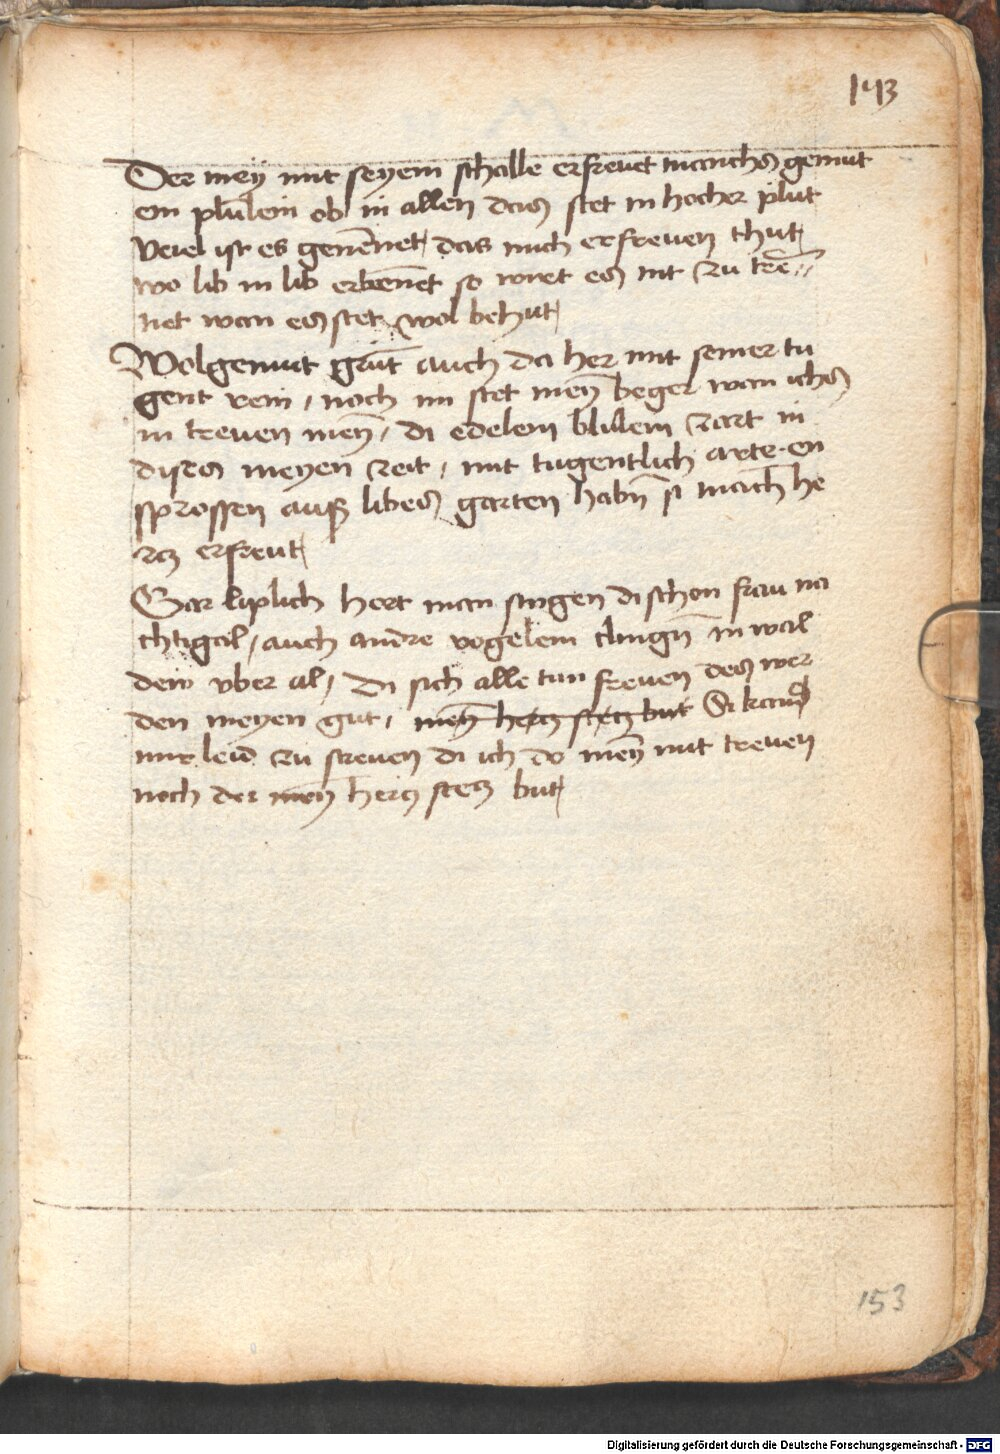 143
Der meÿ mit seyem schalle erfreuet manchs gemut
ein plulein ob in allen das stet in hocher plut
veiel ist es genēnet das mich erfreuen thut
wo lib in lib erkēnet so wiret es nit zu trē⸗
net wan es stet wol behut
Wolgemut grūt auch da her mit seiner tu
gent rein / noch im stet meȳ beger wan ichs
in treuen meȳ / di edelein blulein zart in
dises meyen zeit / mit tugentlich arte en
sprossen auß libes garten habn̄ si manch he
rcz erfreut
Gar liplich hort man singen di schon frau na
chtigal / auch andre vogelein clingn̄ in wal
den vber al / di sich alle tun freuen des wer
den meyen gut / meȳ hercz stecz but Si kan
mir leid zu streuen di ich do meȳ mit treuen
noch der meȳ hercz stecz but
153
Digitalisierung gefördert durch die Deutsche Forschungsgemeinschaft - DFG